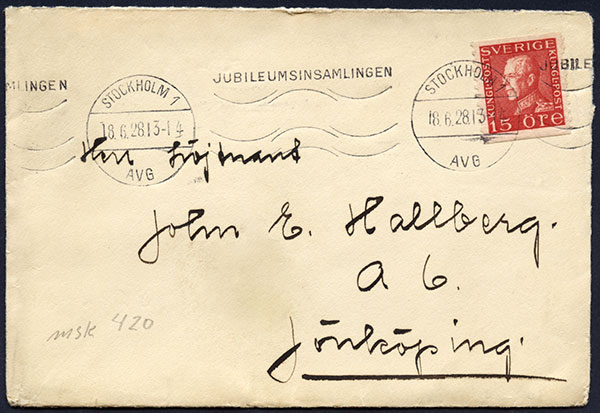 MLINGEN
STOCKHOLM 1
18.6.28 13-14
AVG
JUBILEUMSINSAMLINGEN
STOCKHOLM
18.6.28 13-
AVG
JUBILE
SVERIGE
KUNGL·POST
KUNGL·POST
15 ÖRE
Herr Löjtnant
John E. Hallberg.
A 6.
Jönköping.
msk 420